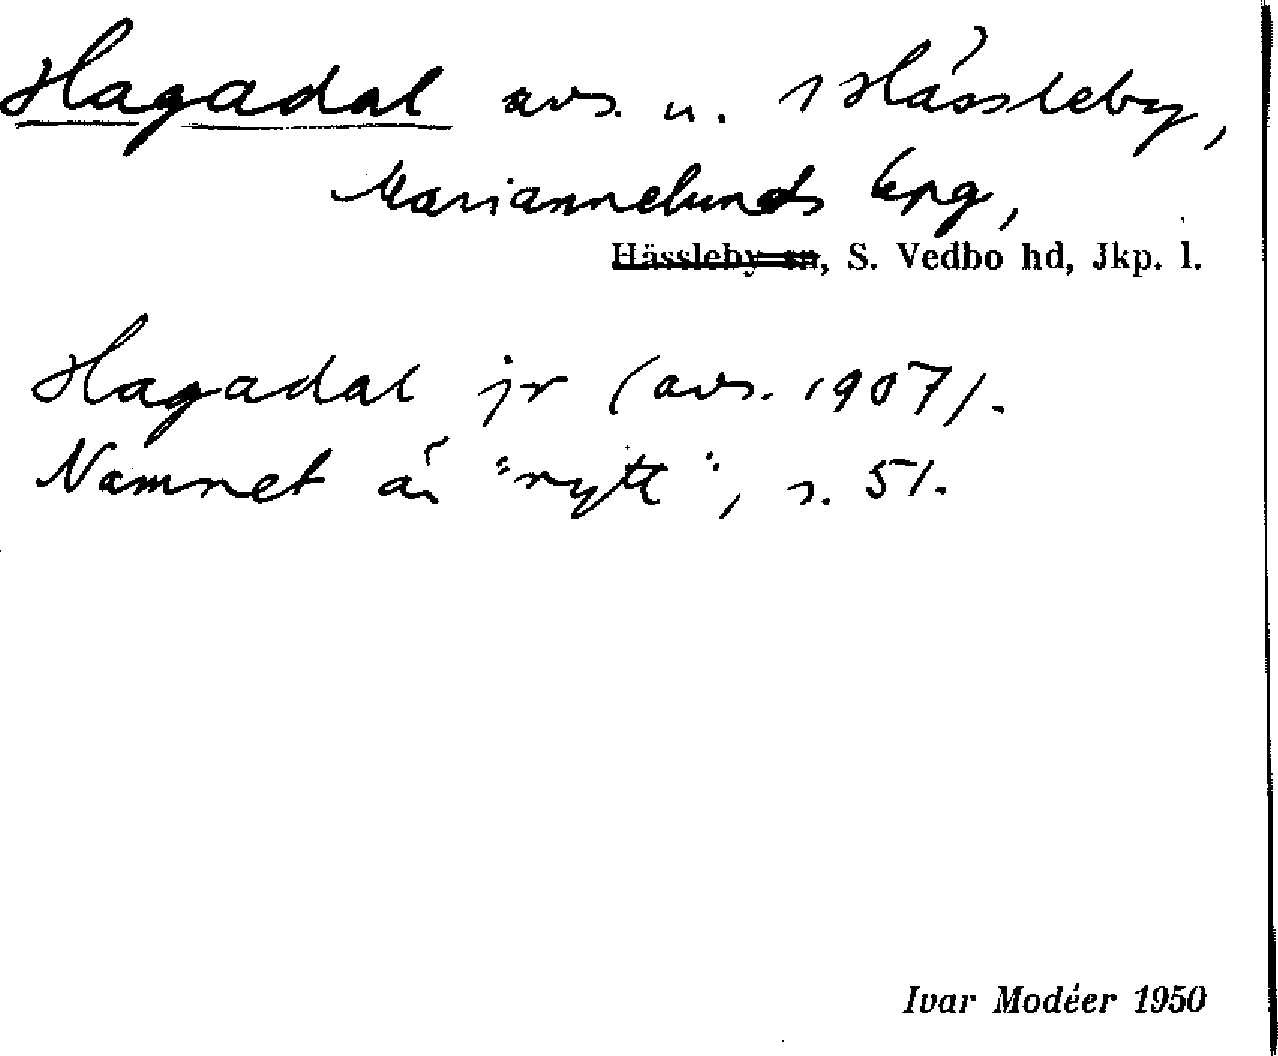 Hagadal avs. u. 1 Hässleby,
Mariannelunds kpg,
Hässleby sn, S. Vedbo hd, Jkp. l.
Hagadal jr (avs. 1907).
Namnet är "nytt", s. 51.
Ivar Modéer 1950